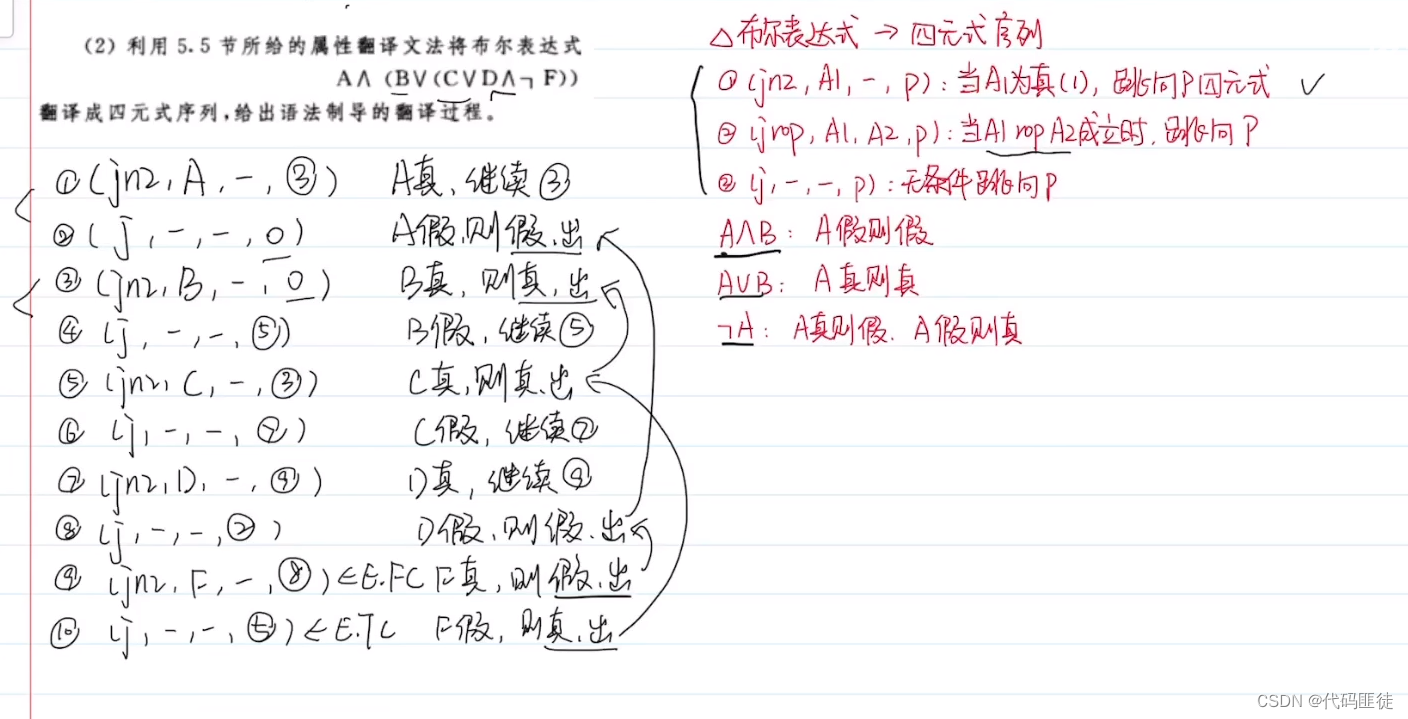 (2) 利用 5.5 节所给的属性翻译文法将布尔表达式
A∧ (B∨(C∨D∧¬ F))
翻译成四元式序列,给出语法制导的翻译过程。
① (jnz, A, -, ③) A真, 继续③
② (j, -, -, 0) A假,则假.出
③ (jnz, B, -, 0) B真, 则真,出
④ (j, -, -, ⑤) B假, 继续⑤
⑤ (jnz, C, -, ③) C真,则真.出
⑥ (j, -, -, ⑦) C假, 继续⑦
⑦ (jnz, D, -, ⑨) D真, 继续⑨
⑧ (j, -, -, ②) D假, 则假.出
⑨ (jnz, F, -, ⑧) ← E.FC F真, 则假.出
⑩ (j, -, -, ⑤) ← E.TC F假, 则真.出
△布尔表达式 → 四元式序列
① (jnz, A1, -, p): 当A1为真(1), 跳向P四元式 ✓
② (jrop, A1, A2, p): 当A1 rop A2成立时. 跳向P
③ (j, -, -, p): 无条件跳向P
A∧B: A假则假
A∪B: A真则真
¬A: A真则假. A假则真
CSDN @代码匪徒